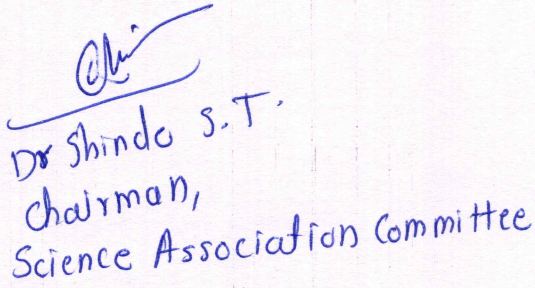 Dr Shinde S.T.
Chairman,
Science Association Committee